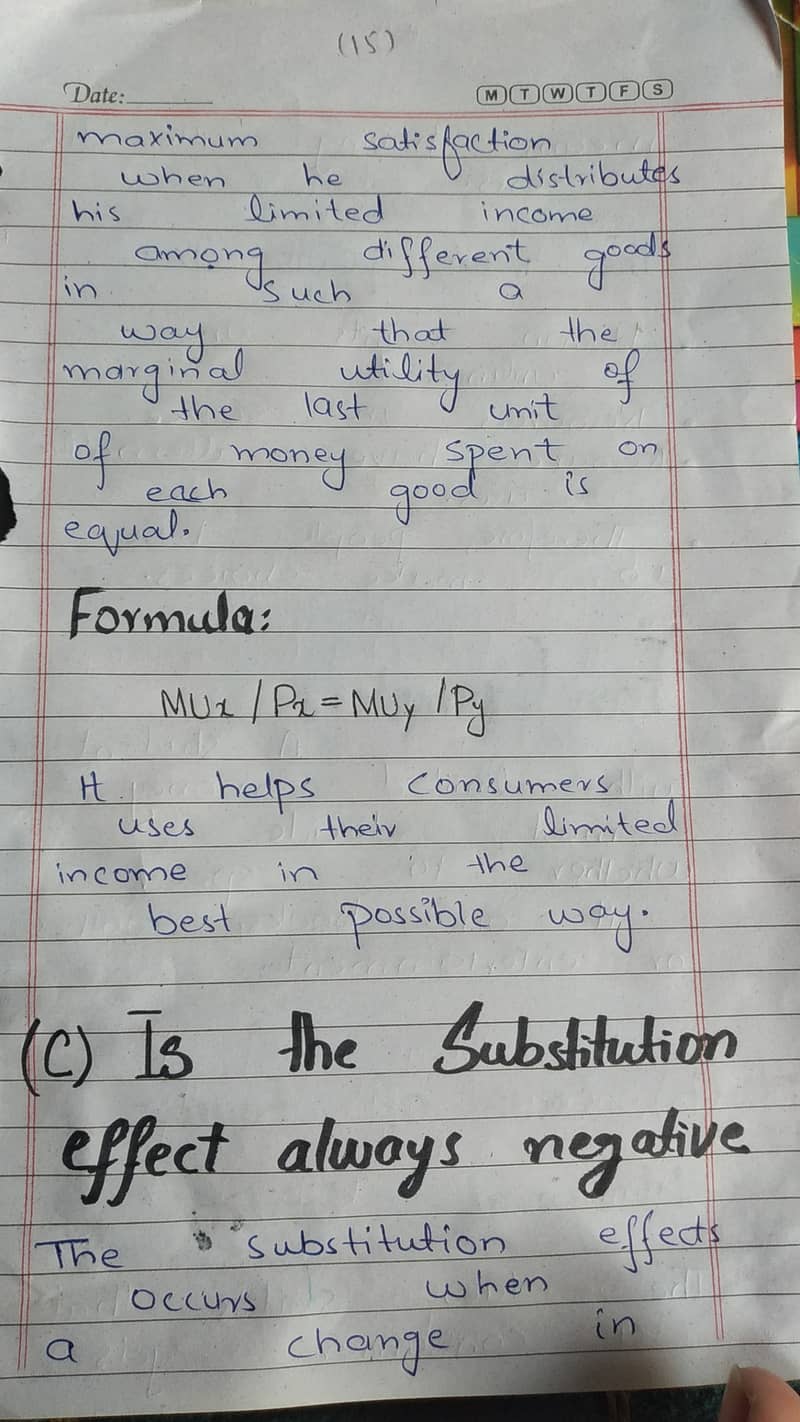 (15)
Date: M T W T F S
maximum satisfaction
when he distributes
his limited income
among different goods
in such a
way that the
marginal utility of
the last unit
of money spent on
each good is
equal.
Formula:
MUx / Px = MUy / Py
It helps consumers
uses their limited
income in the
best possible way.
(C) Is the Substitution
effect always negative
The substitution effects
occurs when
a change in